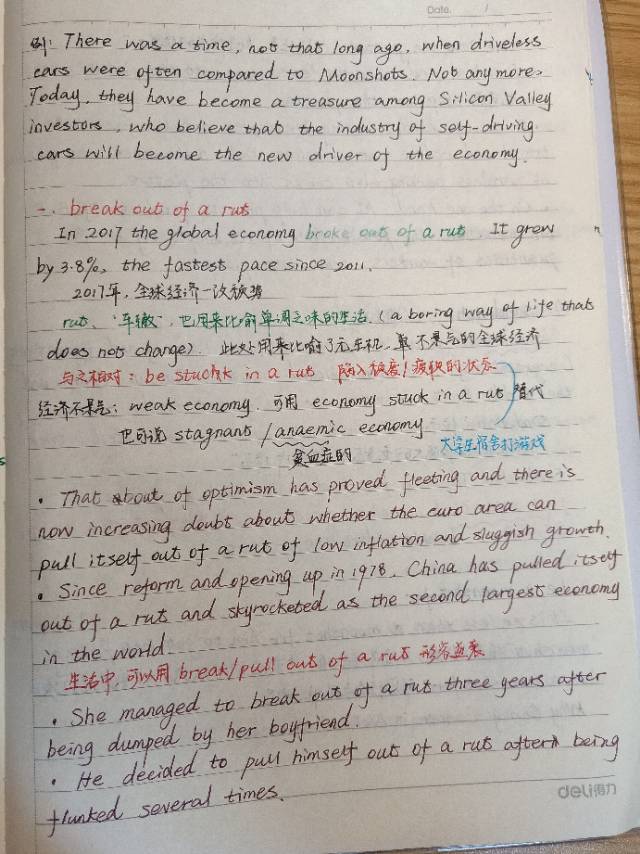 Date. /
例: There was a time, not that long ago, when driveless
cars were often compared to Moonshots. Not any more.
Today, they have become a treasure among Silicon Valley
investors, who believe that the industry of self-driving
cars will become the new driver of the economy.
一. break out of a rut
In 2017 the global economy broke out of a rut. It grew
by 3.8%, the fastest pace since 2011.
2017年, 全球经济一改疲势
rut, "车辙", 也用来比喻单调乏味的生活. (a boring way of life that
does not change). 此处用来比喻了无生机、最不景气的全球经济
与之相对: be stuck in a rut 陷入疲惫/疲软的状态
经济不景气: weak economy. 可用 economy stuck in a rut 替代
也可说 stagnant / anaemic economy
贫血症的
大学生宿舍打游戏
• That about of optimism has proved fleeting and there is
now increasing doubt about whether the euro area can
pull itself out of a rut of low inflation and sluggish growth.
• Since reform and opening up in 1978, China has pulled itself
out of a rut and skyrocketed as the second largest economy
in the world.
生活中, 可以用 break/pull out of a rut 形容逆袭
• She managed to break out of a rut three years after
being dumped by her boyfriend.
• He decided to pull himself out of a rut after being
flunked several times.
deli得力